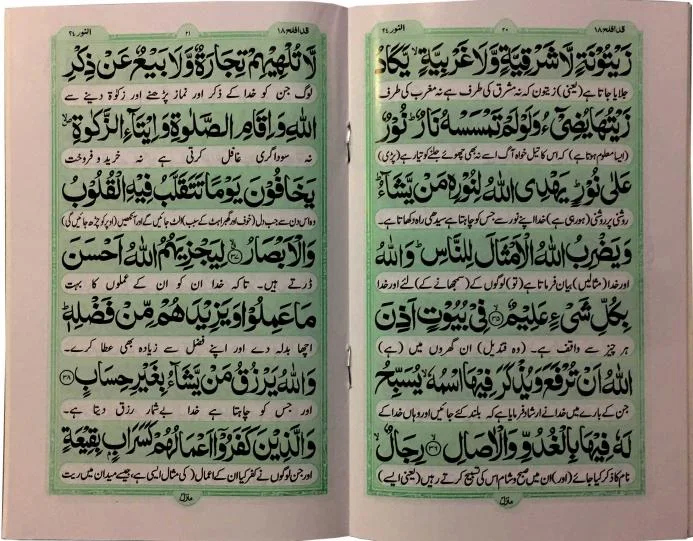 قد افلح ١٨
٢٠
النور ٢٤
زَيْتُوْنَةٍ لَّا شَرْقِيَّةٍ وَّلَا غَرْبِيَّةٍ ۙ يَّكَادُ
جلایا جاتا ہے (یعنی) زیتون کہ نہ مشرق کی طرف ہے نہ مغرب کی طرف
زَيْتُهَا يُضِيْٓءُ وَلَوْ لَمْ تَمْسَسْهُ نَارٌ ؕ نُوْرٌ
(ایسا معلوم ہوتا ہے) کہ اس کا تیل خواہ آگ اسے نہ بھی چھوئے جلنے کو تیار ہے (بڑی)
عَلٰى نُوْرٍ ؕ يَهْدِى اللّٰهُ لِنُوْرِهٖ مَنْ يَّشَآءُ ؕ
روشنی پر روشنی (ہو رہی ہے) خدا اپنے نور سے جس کو چاہتا ہے سیدھی راہ دکھاتا ہے۔
وَيَضْرِبُ اللّٰهُ الْاَمْثَالَ لِلنَّاسِ ؕ وَاللّٰهُ
اور خدا (مثالیں) بیان فرماتا ہے (تو) لوگوں کے (سمجھانے کے) لئے اور خدا
بِكُلِّ شَىْءٍ عَلِيْمٌ ۙ‏﴿۳۵﴾ فِىْ بُيُوْتٍ اَذِنَ
ہر چیز سے واقف ہے۔ (وہ قندیل) ان گھروں میں (ہے)
اللّٰهُ اَنْ تُرْفَعَ وَيُذْكَرَ فِيْهَا اسْمُهٗ ۙ يُسَبِّحُ
جن کے بارے میں خدا نے ارشاد فرمایا ہے کہ بلند کئے جائیں اور وہاں خدا کے
لَهٗ فِيْهَا بِالْغُدُوِّ وَالْاٰصَالِ ۙ‏﴿۳۶﴾ رِجَالٌ ۙ
نام کا ذکر کیا جائے (اور) ان میں صبح و شام اس کی تسبیح کرتے رہیں (یعنی ایسے)
منزل
قد افلح ١٨
٢١
النور ٢٤
لَّا تُلْهِيْهِمْ تِجَارَةٌ وَّلَا بَيْعٌ عَنْ ذِكْرِ
لوگ جن کو خدا کے ذکر اور نماز پڑھنے اور زکوٰۃ دینے سے
اللّٰهِ وَاِقَامِ الصَّلٰوةِ وَاِيْتَآءِ الزَّكٰوةِ ۙ
نہ سوداگری غافل کرتی ہے نہ خرید و فروخت
يَخَافُوْنَ يَوْمًا تَتَقَلَّبُ فِيْهِ الْقُلُوْبُ
وہ اس دن سے جب دل (خوف اور گھبراہٹ کے سبب) الٹ جائیں گے اور آنکھیں (اوپر کو چڑھ جائیں گی)
وَالْاَبْصَارُ ۙ‏﴿۳۷﴾ لِيَجْزِيَهُمُ اللّٰهُ اَحْسَنَ
ڈرتے ہیں۔ تاکہ خدا ان کو ان کے عملوں کا بہت
مَا عَمِلُوْا وَيَزِيْدَهُمْ مِّنْ فَضْلِهٖ ؕ
اچھا بدلہ دے اور اپنے فضل سے زیادہ بھی عطا کرے۔
وَاللّٰهُ يَرْزُقُ مَنْ يَّشَآءُ بِغَيْرِ حِسَابٍ ‏﴿۳۸﴾
اور جس کو چاہتا ہے خدا بے شمار رزق دیتا ہے۔
وَالَّذِيْنَ كَفَرُوْۤا اَعْمَالُهُمْ كَسَرَابٍۭ بِقِيْعَةٍ
اور جن لوگوں نے کفر کیا ان کے اعمال (کی مثال ایسی ہے) جیسے میدان میں ریت
منزل